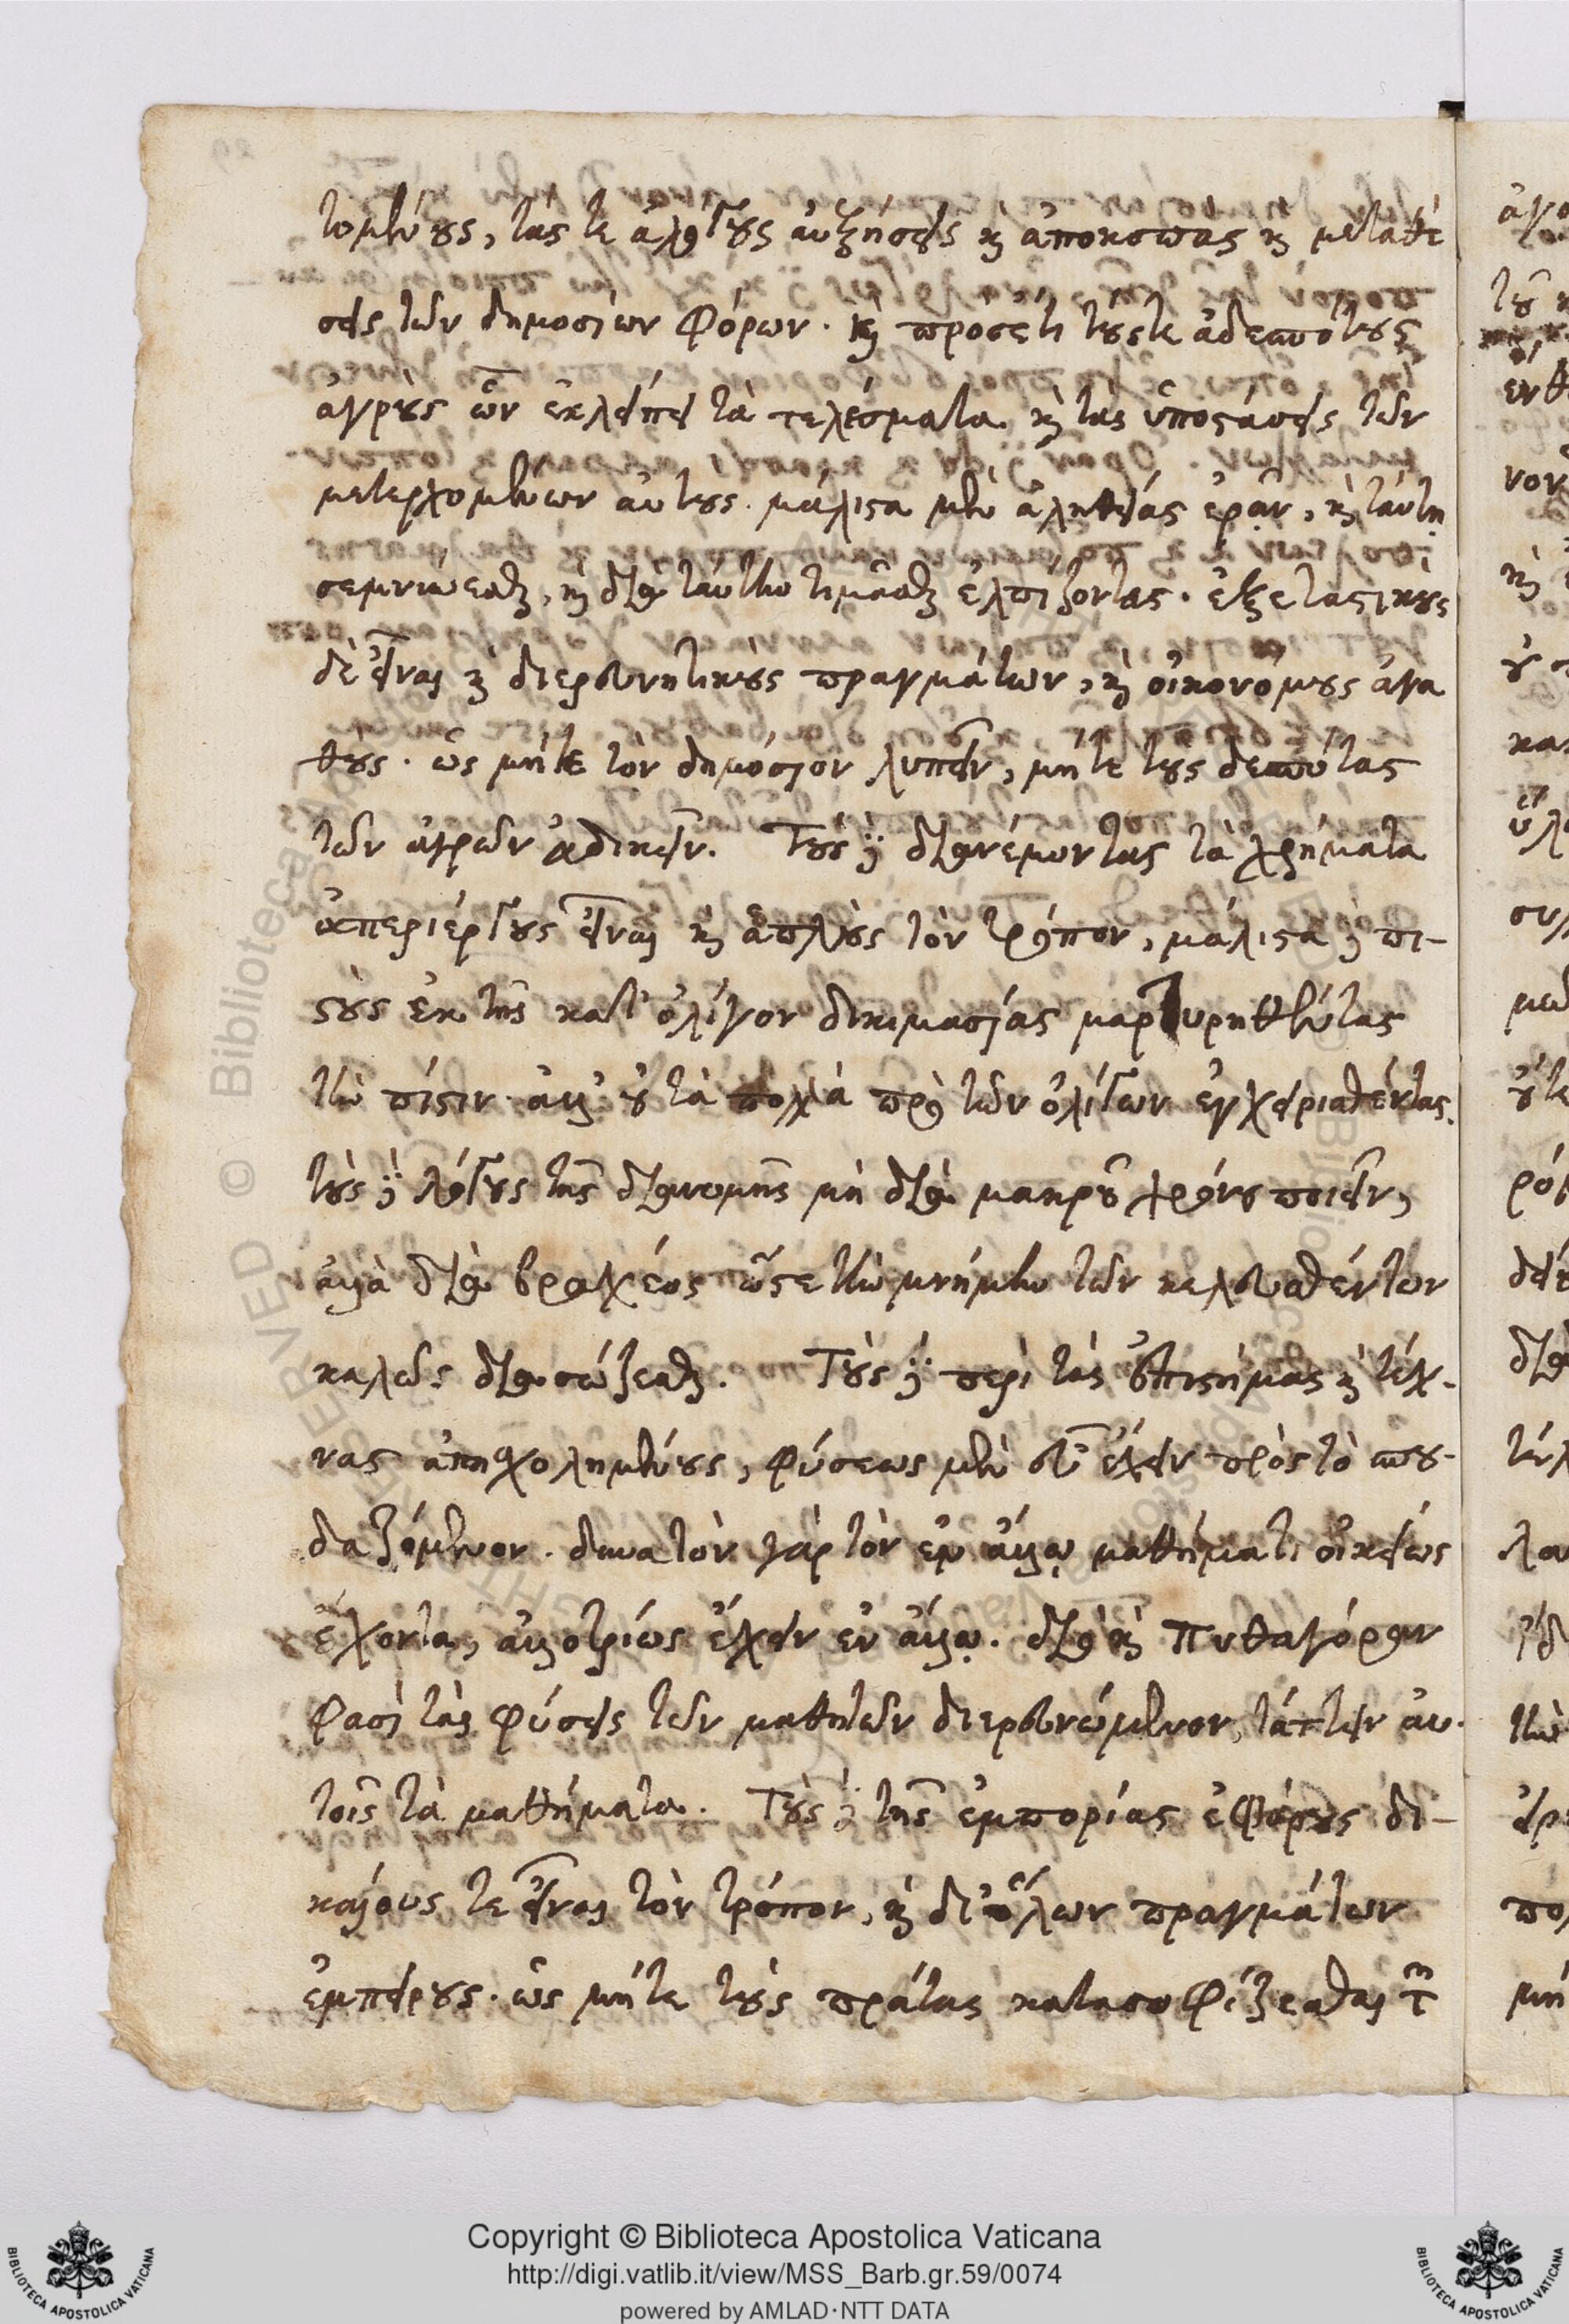 τομένους, τάς τε ἀλόγους αὐξήσεις καὶ ἀποκοπὰς καὶ μεταθέ
σεις τῶν δημοσίων φόρων. καὶ πρόσέτι τούς τε ἀδεσπότους
ἀγροὺς ὧν ἐκλείπει τὰ τελέσματα. καὶ τὰς ὑποστάσεις τῶν
μετερχομένων αὐτούς. μάλιστα μὲν ἀληθείας ἐρᾷν, καὶ ταύτῃ
σεμνύνεσθαι, καὶ διὰ ταύτην τιμᾶσθαι ἐλπίζοντας. ἐξεταστικοὺς
δὲ εἶναι καὶ διερευνητικοὺς πραγμάτων, καὶ οἰκονόμους ἀγα
θούς. ὡς μήτε τὸν δημόσιον λυπεῖν, μήτε τοὺς δεσπότας
τῶν ἀγρῶν ἀδικεῖν. Τοὺς δὲ διανέμοντας τὰ χρήματα
ἀπεριέργους εἶναι καὶ ἁπλοῦς τὸν τρόπον, μάλιστα δὲ πι-
στοὺς ἐκ τῆς κατ' ὀλίγον δοκιμασίας μαρτυρηθέντας
τὴν πίστιν. ἀλλ' οὐ τὰ πολλὰ πρὸ τῶν ὀλίγων ἐγχειρισθέντας.
τοὺς δὲ λόγους τῆς διανομῆς μὴ διὰ μακροῦ χρόνου ποιεῖν,
ἀλλὰ διὰ βραχέος ὥστε τὴν μνήμην τῶν κελευσθέντων
καλῶς διασώζεσθαι. Τοὺς δὲ περὶ τὰς ἐπιστήμας καὶ τέχ-
νας ἀπησχολημένους, φύσεως μὲν εὖ ἔχειν πρὸς τὸ σπου-
δαζόμενον. δυνατὸν γὰρ τὸν ἐν ἄλλῳ μαθήματι οἰκείως
ἔχοντα, ἀλλοτρίως ἔχειν ἐν ἄλλῳ. διὸ καὶ Πυθαγόραν
φασὶ τὰς φύσεις τῶν μαθητῶν διερευνώμενον, τάττειν αὐ-
τοῖς τὰ μαθήματα. Τοὺς δὲ τῆς ἐμπορίας ἐφόρους δι-
καίους τε εἶναι τὸν τρόπον, καὶ δι' ὅλων πραγμάτων
ἐμπείρους. ὡς μήτε τοὺς πράτας κατασοφίζεσθαι τ
Copyright © Biblioteca Apostolica Vaticana
http://digi.vatlib.it/view/MSS_Barb.gr.59/0074
powered by AMLAD·NTT DATA